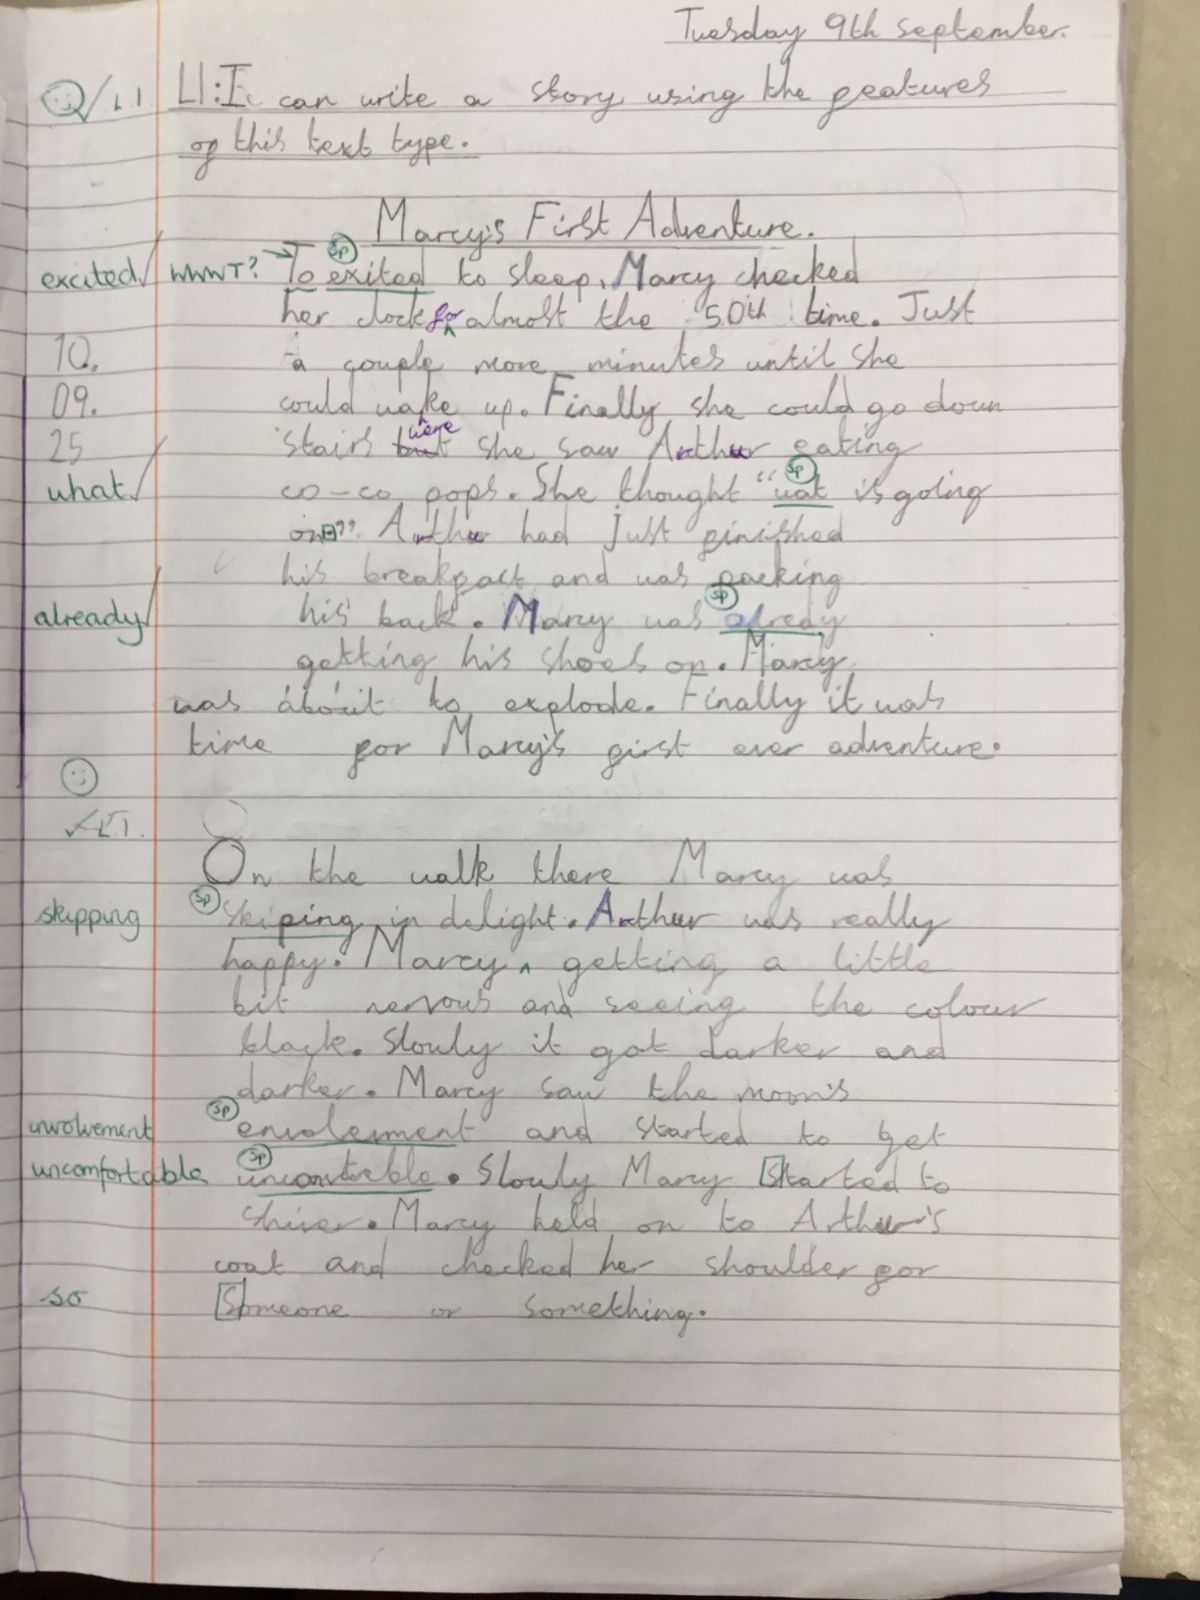 Tuesday 9th september.
LI: I can write a story using the features
of this text type.
Marcy's First Adventure.
excited WWWT? To sp exited to sleep, Marcy checked
her clock for almost the 50th time. Just
10. a couple more minutes until she
09. could wake up. Finally she could go down
25 stairs were she saw Arthur eating
what co-co pops. She thought "sp wat is going
on?" Arthur had just finished
his breakfast and was packing
already his back. Marcy was sp alredy
getting his shoes on. Marcy
was about to explode. Finally it was
time for Marcy's first ever adventure.
✓LI.
On the walk there Marcy was
skipping sp skiping in delight. Arthur was really
happy. Marcy ^ getting a little
bit nervous and seeing the colour
black. Slowly it got darker and
darker. Marcy saw the moon's
involvement sp envolement and started to get
uncomfortable sp unconvtreble. Slowly Marcy Started to
shiver. Marcy held on to Arthur's
coat and checked her shoulder for
so Someone or something.